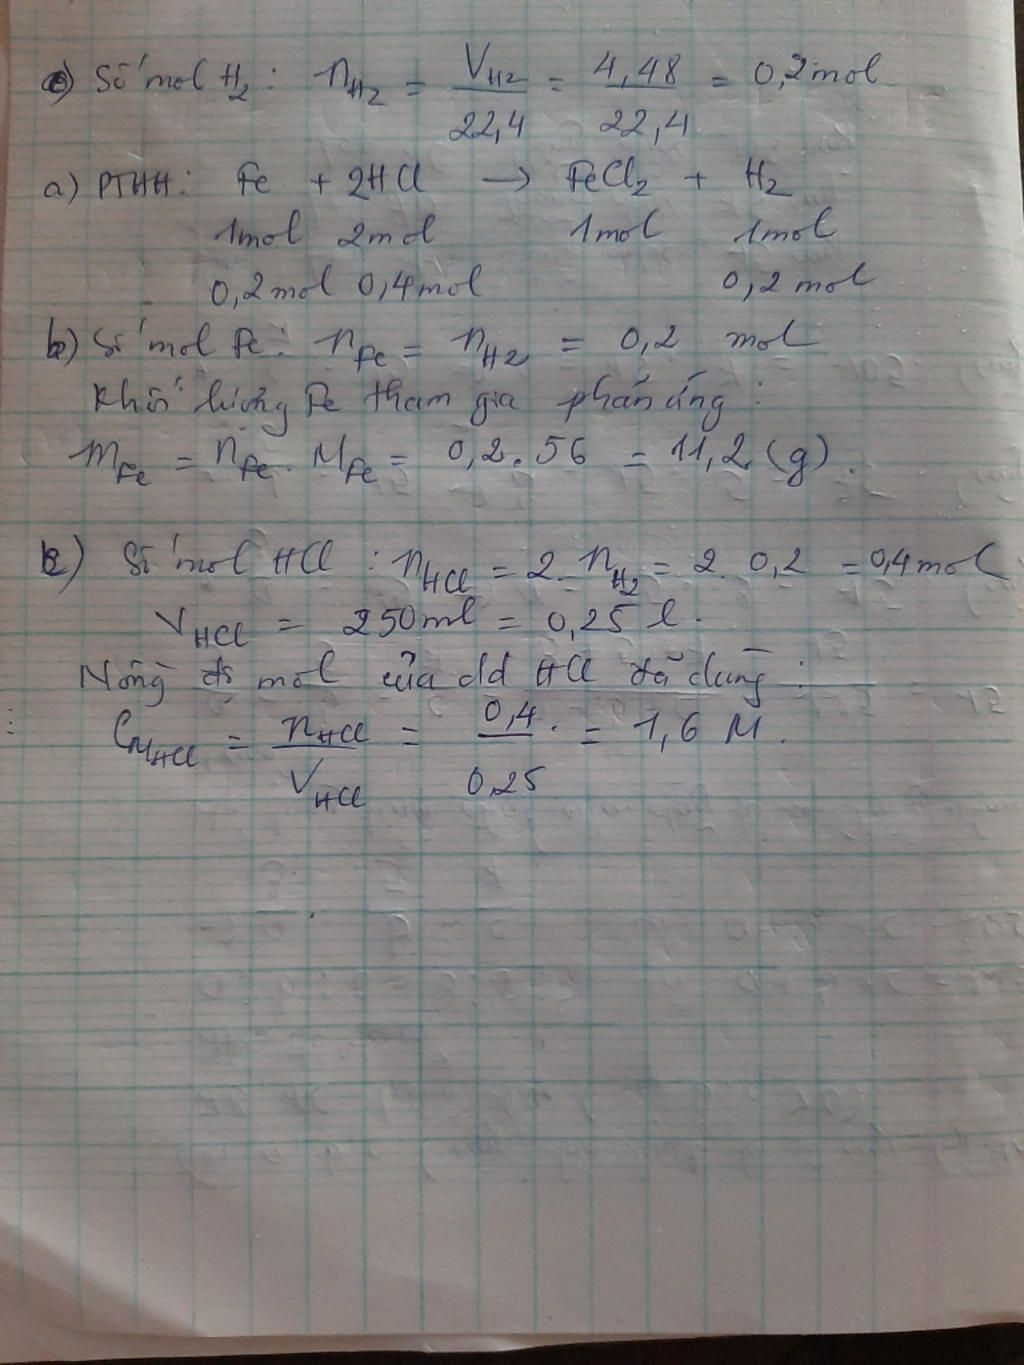 Số mol H₂: n_H₂ = V_H₂/22,4 = 4,48/22,4 = 0,2 mol
a) PTHH: Fe + 2HCl → FeCl₂ + H₂
1mol 2mol 1mol 1mol
0,2mol 0,4mol 0,2 mol
b) Số mol Fe: n_Fe = n_H₂ = 0,2 mol
Khối lượng Fe tham gia phản ứng:
m_Fe = n_Fe . M_Fe = 0,2.56 = 11,2 (g).
c) Số mol HCl: n_HCl = 2. n_H₂ = 2. 0,2 = 0,4 mol
V_HCl = 250ml = 0,25 l.
Nồng độ mol của dd HCl đã dùng:
C_M HCl = n_HCl/V_HCl = 0,4/0,25 = 1,6 M.